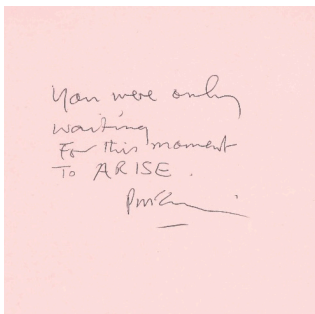 You were only
waiting
For this moment
To ARISE.